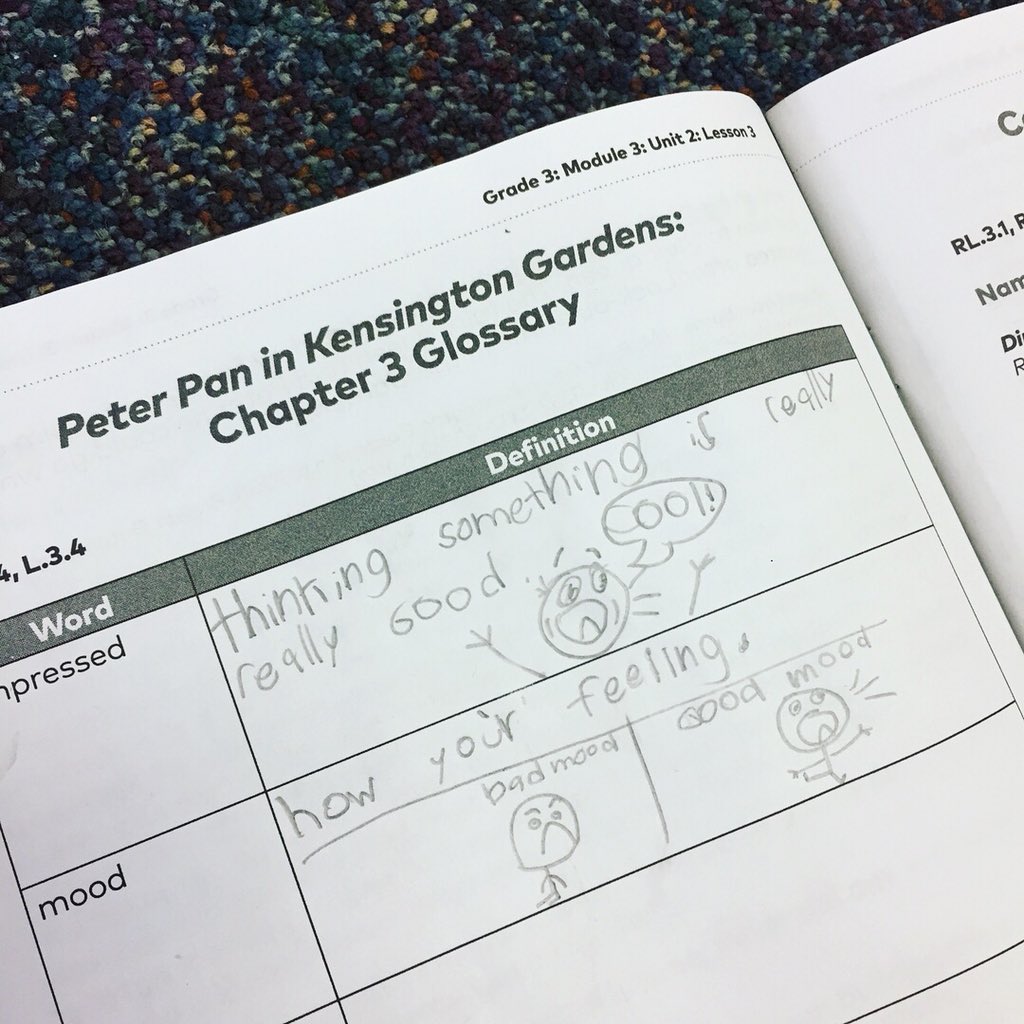 Grade 3: Module 3: Unit 2: Lesson 3
Peter Pan in Kensington Gardens:
Chapter 3 Glossary
4, L.3.4
Word
Definition
npressed
thinking something is really
really good.
cool!
mood
how your feeling.
bad mood
good mood
Co
RL.3.1, R
Nam
Di
R